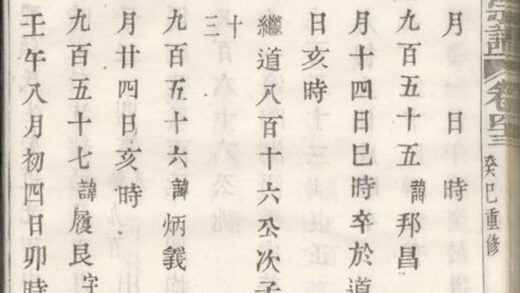 宗譜 卷四三 癸巳重修
月 日 時
九百五十五 諱邦昌
月十四日巳時卒於道
日亥時
繼道八百十六公次子
十三
九百五十六 諱炳義
月廿四日亥時
九百五十七 諱履艮字
壬午八月初四日卯時